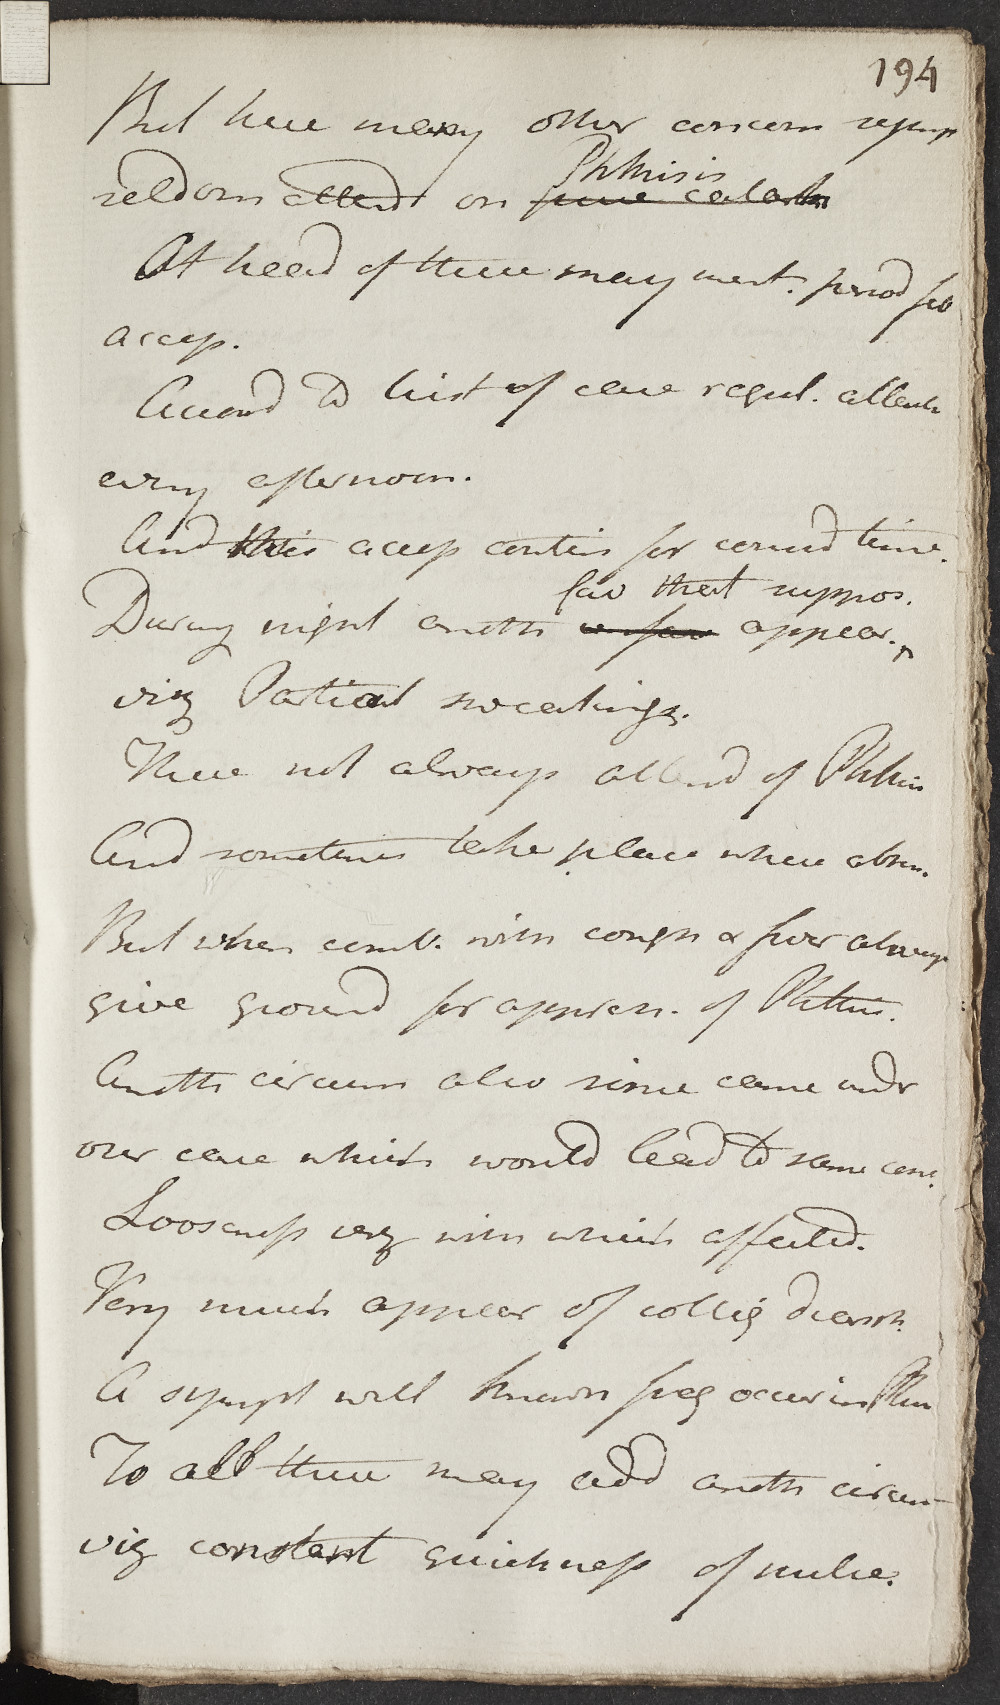 194
But here many other concom symp
seldom attend on Phthisis pure catarrh
At head of these may ment. period feb
accep.
Accord to hist of case regul. attends
every afternoon.
And this access contin for consid time.
fav that suppos.
During night anoth appear.
viz Partial sweatings.
These not always attend of Phthis
And sometimes take place where absen.
But when comb. with cough & fever always
give ground for appreh. of Phthis.
Anoth circum also since came undr
our care which would lead to same conc.
Looseness viz with which affected.
Very much appear of colliq diarrh.
A sympt well known freq occur in Phthis
To all these may add anoth circum
viz constant quickness of pulse.